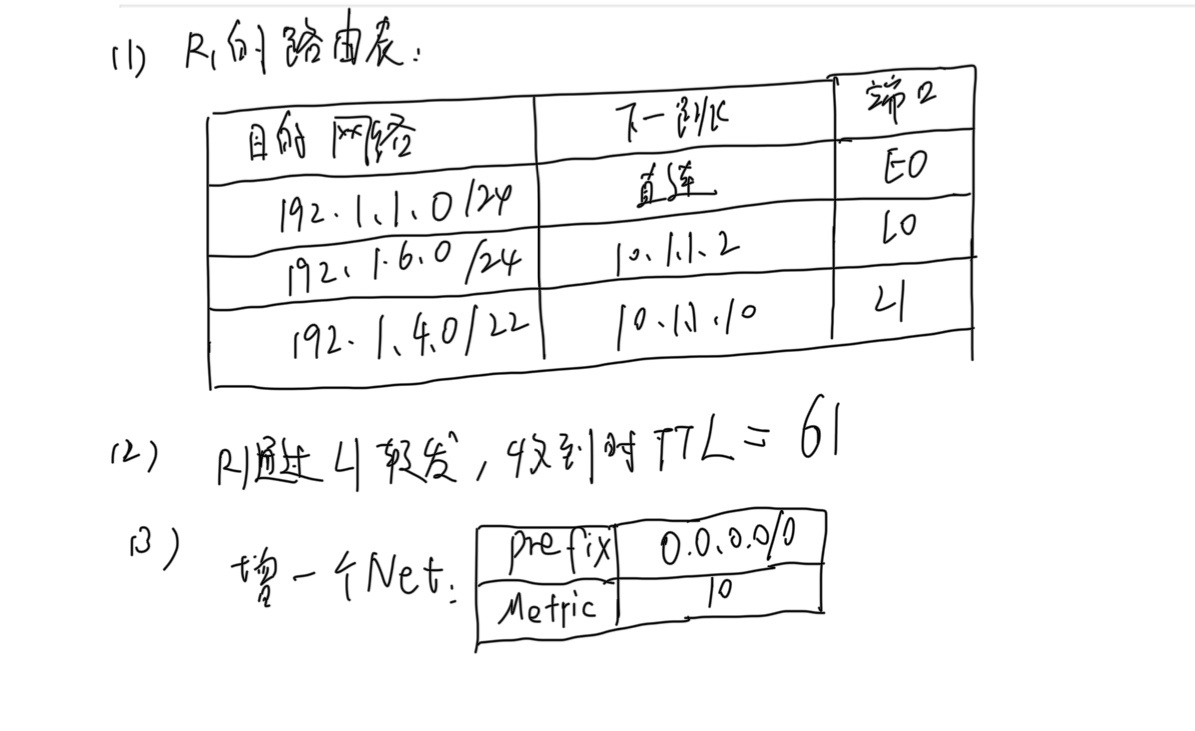 (1) R1的路由表:
目的网络 下一跳 端口
192.1.1.0/24 直连 E0
192.1.6.0/24 10.1.1.2 L0
192.1.4.0/22 10.1.1.10 L1
(2) R1通过L1转发,收到时TTL=61
(3) 增一个Net:
Prefix 0.0.0.0/0
Metric 10